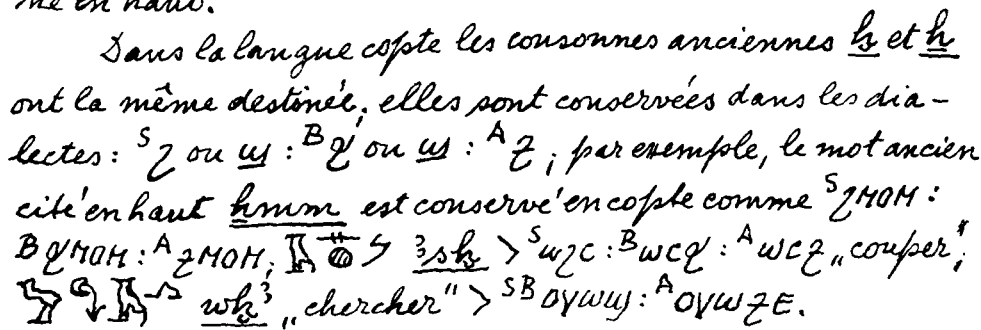 me en haut.
Dans la langue copte les consonnes anciennes ḫ et ẖ
ont la même destinée; elles sont conservées dans les dia-
lectes: ˢϩ ou ϣ : ᴮϧ ou ϣ : ᴬⳉ; par exemple, le mot ancien
cité en haut ẖmm est conservé en copte comme ˢϩⲙⲟⲙ :
ᴮϧⲙⲟⲙ : ᴬⳉⲙⲟⲙ; ꜣsḫ > ˢⲱϩⲥ : ᴮⲱⲥϧ : ᴬⲱⲥⳉ „couper";
wḫꜣ „chercher" > ˢᴮⲟⲩⲱϣ : ᴬⲟⲩⲱⳉⲉ.